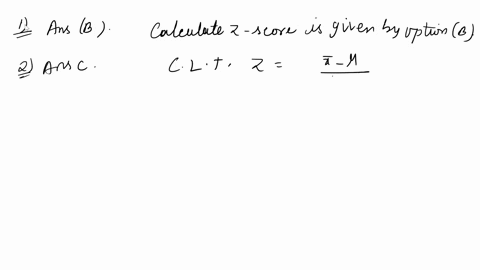 1) Ans (B). Calculate z-score is given by option (B)
2) Ans C. C.L.T. Z = x̄ - μ